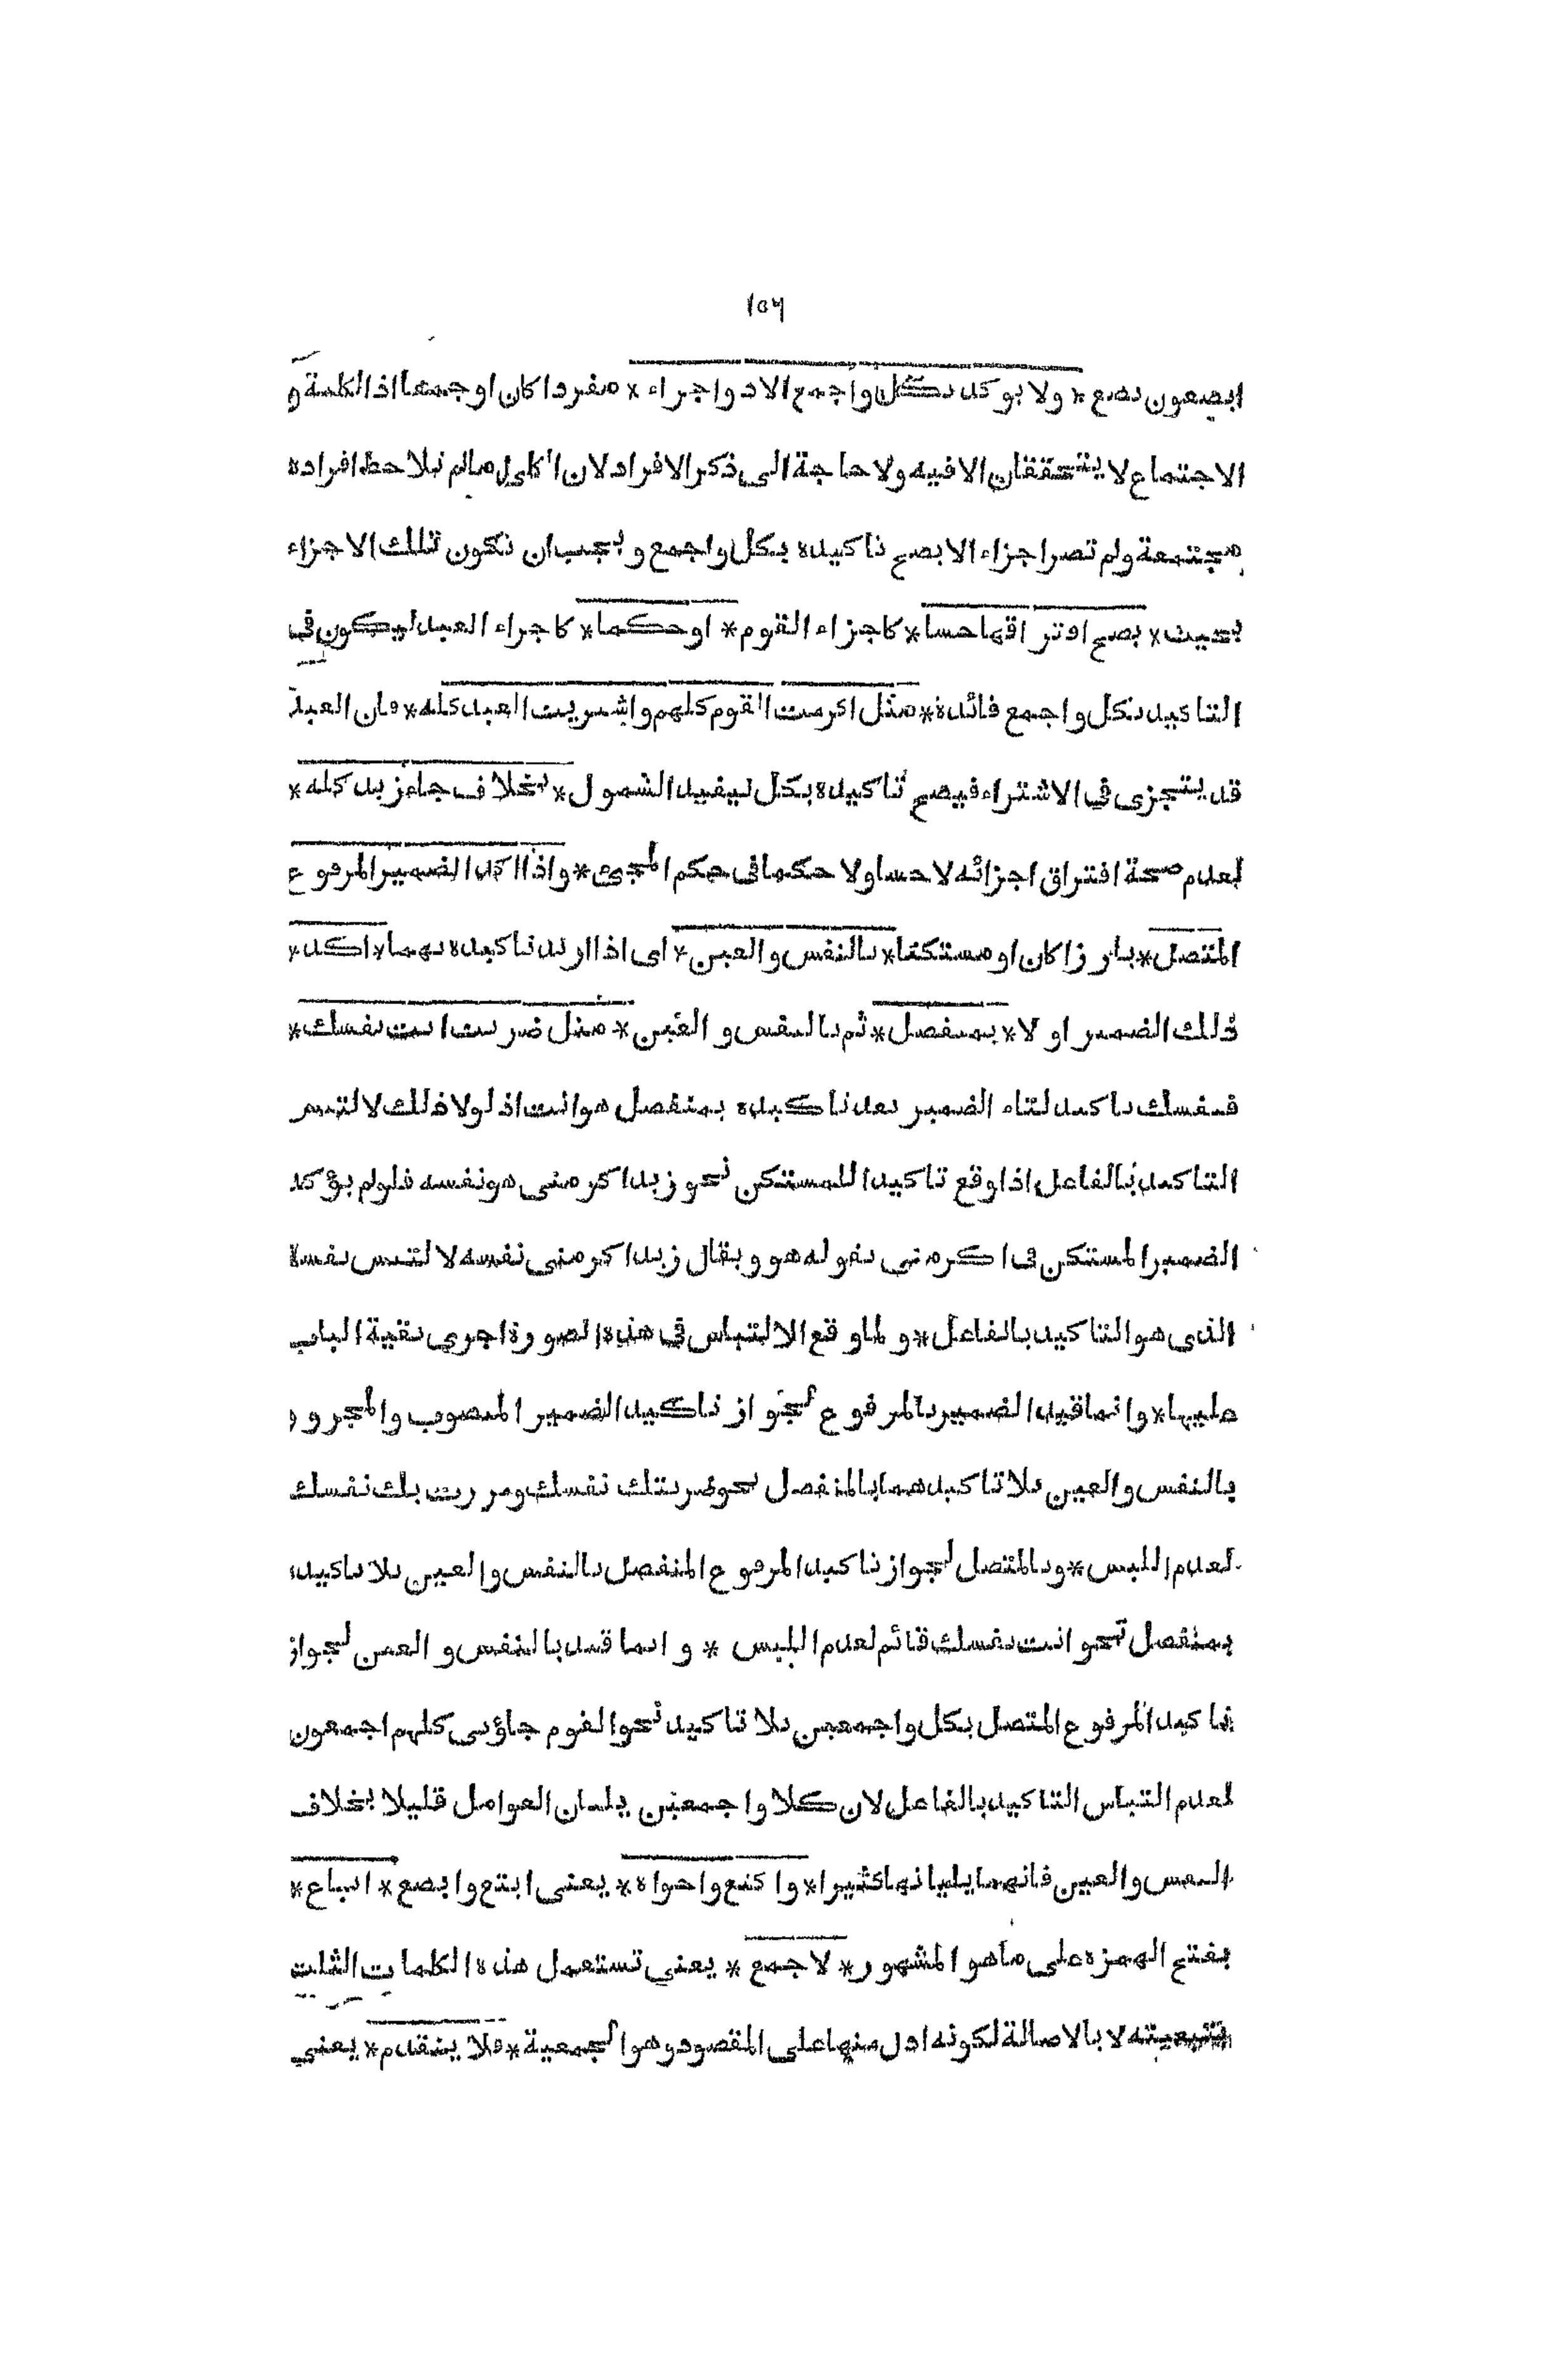 ١٥٦
ابصعون بصع * ولا يوكد بكل واجمع الا ذو اجزاء * مفردا كان او جمعا اذ الكلية و
الاجتماع لا يتحققان الا فيه ولا حاجة الى ذكر الافراد لان الكلى مالم تلاحظ افراده
مجتمعة ولم تصر اجزاء لا يصح تاكيده بكل واجمع ويجب ان تكون تلك الاجزاء
بحيث * يصح افتراقها حسا * كاجزاء القوم * او حكما * كاجزاء العبد ليكون فى
التاكيد بكل واجمع فائدة * مثل اكرمت القوم كلهم واشتريت العبد كله * فان العبد
قد يتجزى فى الاشتراء فيصح تاكيده بكل ليفيد الشمول * بخلاف جاء زيد كله *
لعدم صحة افتراق اجزائه لا حسا ولا حكما فى حكم المجىء * واذا اكد الضمير المرفوع
المتصل * بارزا كان او مستكنا * بالنفس والعين * اى اذا اريد تاكيده بهما * اكد *
ذلك الضمير اولا * بمنفصل * ثم بالنفس والعين * مثل ضربت انت نفسك *
فنفسك تاكيد لتاء الضمير بعد تاكيده بمنفصل هو انت اذ لولا ذلك لالتبس
التاكيد بالفاعل اذا وقع تاكيدا للمستكن نحو زيد اكرمنى هو نفسه فلو لم يؤكد
الضمير المستكن فى اكرمنى بقوله هو ويقال زيد اكرمنى نفسه لالتبس نفسه
الذى هو التاكيد بالفاعل * ولما وقع الالتباس فى هذه الصورة اجرى بقية الباب
عليها * وانما قيد الضمير بالمرفوع لجواز تاكيد الضمير المنصوب والمجرور
بالنفس والعين بلا تاكيدهما بالمنفصل نحو ضربتك نفسك ومررت بك نفسك
لعدم اللبس * وبالمتصل لجواز تاكيد المرفوع المنفصل بالنفس والعين بلا تاكيده
بمنفصل نحو انت نفسك قائم لعدم اللبس * وانما قيد بالنفس والعين لجواز
تاكيد المرفوع المتصل بكل واجمعين بلا تاكيد نحو القوم جاؤنى كلهم اجمعون
لعدم التباس التاكيد بالفاعل لان كلا واجمعين يليان العوامل قليلا بخلاف
النفس والعين فانهما يليانها كثيرا * واكتع واخواه * يعنى ابتع وابصع * اتباع *
بفتح الهمزه على ما هو المشهور * لاجمع * يعنى تستعمل هذه الكلمات الثلث
بتبعيته لا بالاصالة لكونه ادل منها على المقصود وهو الجمعية * فلا يتقدم * يعنى